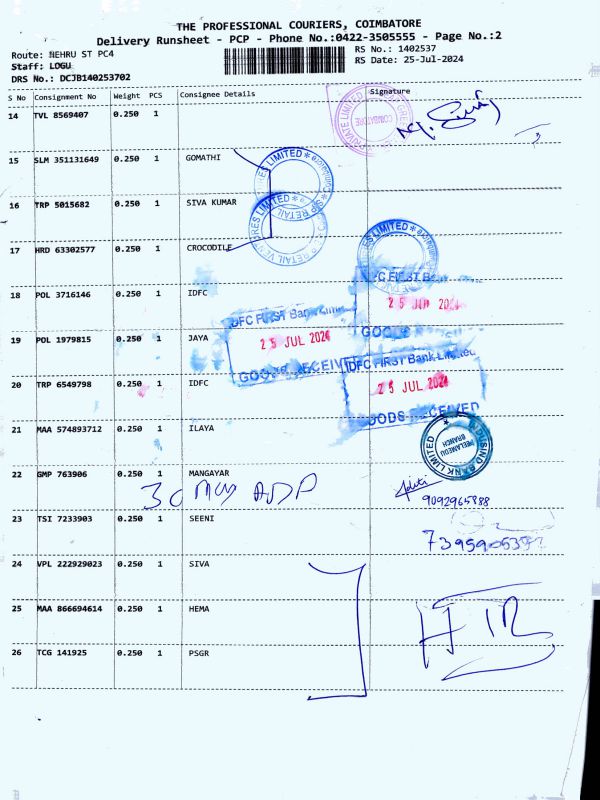 THE PROFESSIONAL COURIERS, COIMBATORE
Delivery Runsheet - PCP - Phone No.:0422-3505555 - Page No.:2
Route: NEHRU ST PC4
RS No.: 1402537
Staff: LOGU
RS Date: 25-Jul-2024
DRS No.: DCJB140253702
S No Consignment No Weight PCS Consignee Details Signature
14 TVL 8569407 0.250 1
PRIVATE LIMITED COIMBATORE
15 SLM 351131649 0.250 1 GOMATHI
LIMITED
16 TRP 5015682 0.250 1 SIVA KUMAR
LIMITED RETAIL
17 HRD 63302577 0.250 1 CROCODILE
LIMITED
18 POL 3716146 0.250 1 IDFC
FIRST Bank
25 JUL 2024
19 POL 1979815 0.250 1 JAYA
IDFC FIRST Bank
25 JUL 2024
GOODS RECEIVED
GOODS
20 TRP 6549798 0.250 1 IDFC
IDFC FIRST Bank Limited
25 JUL 2024
GOODS RECEIVED
21 MAA 574893712 0.250 1 ILAYA
INDUSIND BANK LIMITED
PEELAMEDU
BRANCH
22 GMP 763906 0.250 1 MANGAYAR
9092965888
23 TSI 7233903 0.250 1 SEENI
24 VPL 222929023 0.250 1 SIVA
25 MAA 866694614 0.250 1 HEMA
26 TCG 141925 0.250 1 PSGR